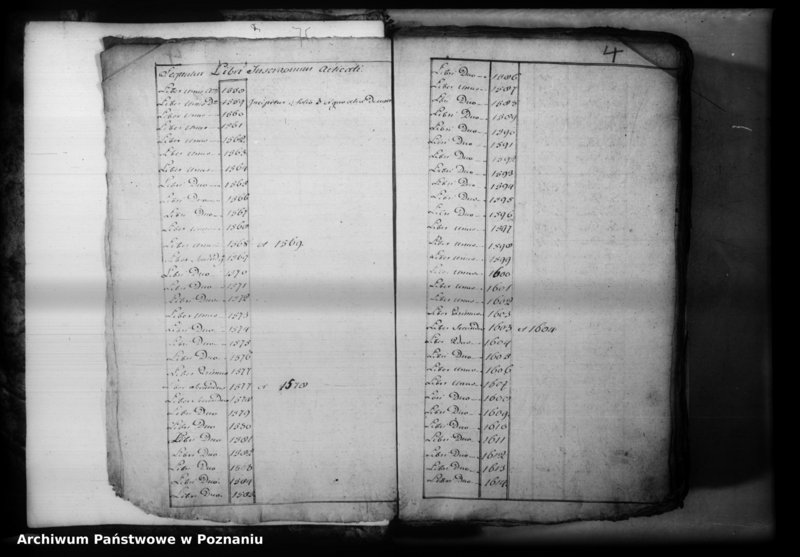 76
Sequntur Libri Inscriptionum
Liber unus 1560
Liber unus 1561
Liber unus 1562
Liber unus 1563
Liber unus 1564
Libri Duo 1565
Libri Duo 1566
Libri Duo 1567
Liber unus 1568
Liber unus 1568 et 1569
Liber 1569
Libri Duo 1570
Libri Duo 1571
Libri Duo 1572
Liber unus 1573
Libri Duo 1574
Libri Duo 1575
Libri Duo 1576
Liber Primus 1577
Liber Secundus 1577 et 1578
Liber Secundus 1578
Libri Duo 1579
Libri Duo 1580
Libri Duo 1581
Libri Duo 1582
Libri Duo 1583
Libri Duo 1584
Libri Duo 1585
4
Libri Duo 1586
Liber unus 1587
Libri Duo 1588
Libri Duo 1589
Libri Duo 1590
Libri Duo 1591
Libri Duo 1592
Libri Duo 1593
Libri Duo 1594
Libri Duo 1595
Libri Duo 1596
Liber unus 1597
Liber unus 1598
Liber unus 1599
Liber unus 1600
Liber unus 1601
Liber unus 1602
Liber Primus 1603
Liber Secundus 1603 et 1604
Libri Duo 1604
Libri Duo 1605
Liber unus 1606
Liber unus 1607
Libri Duo 1608
Libri Duo 1609
Libri Duo 1610
Libri Duo 1611
Libri Duo 1612
Libri Duo 1613
Libri Duo 1614
Archiwum Państwowe w Poznaniu